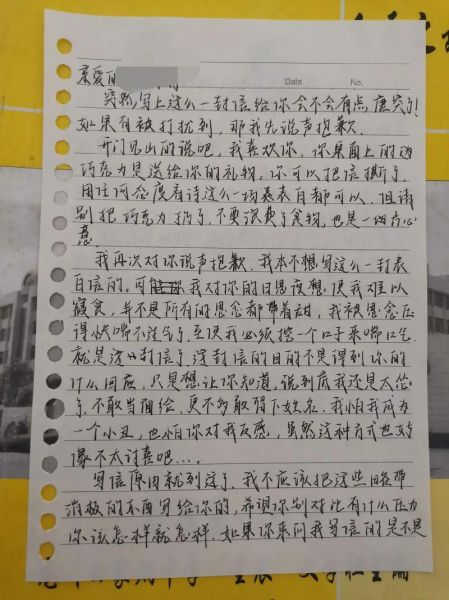 亲爱的
Date.
No.
突然写上这么一封信给你会不会有点唐突!
如果有被打扰到,那我先说声抱歉.
开门见山的说吧,我喜欢你,你桌面上的
巧克力是送给你的礼物,你可以把信撕了,
用任何态度看待这么一场表白都可以,但请
别把巧克力扔了,不要浪费了食物,也是一份心
意.
我再次对你说声抱歉,我本不想写这么一封表
白信的.可我对你的日思夜想,使我难以
寝食,并不是所有的思念都带着甜,我被思念压
得快喘不过气了,至使我必须挖一个口子来喘口气
就是这封信了,这封信的目的不是得到你的
什么回应,只是想让你知道,说到底我还是太怂
了,不敢当面给,更不敢留下姓名,我怕我成为
一个小丑,也怕你对我反感,虽然这种方式也好
像不太讨喜吧....
写信原因就到这了,我不应该把这些略带
消极的东西写给你的,希望你别对此有什么压力
你该怎样就怎样,如果你来问我写信的是不是